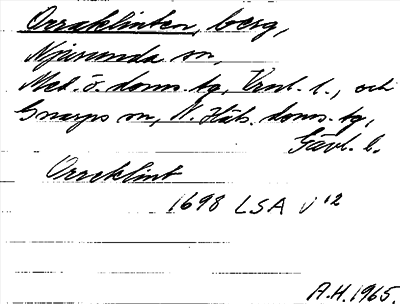 Orraklinten, berg,
Njurunda sn,
Med. ö. doms. tg, Vnl. l., och
Gnarps sn, N. Häls. doms. tg,
Gävl. l.
Orreklint
1698 LSA V 12
A.H. 1965.